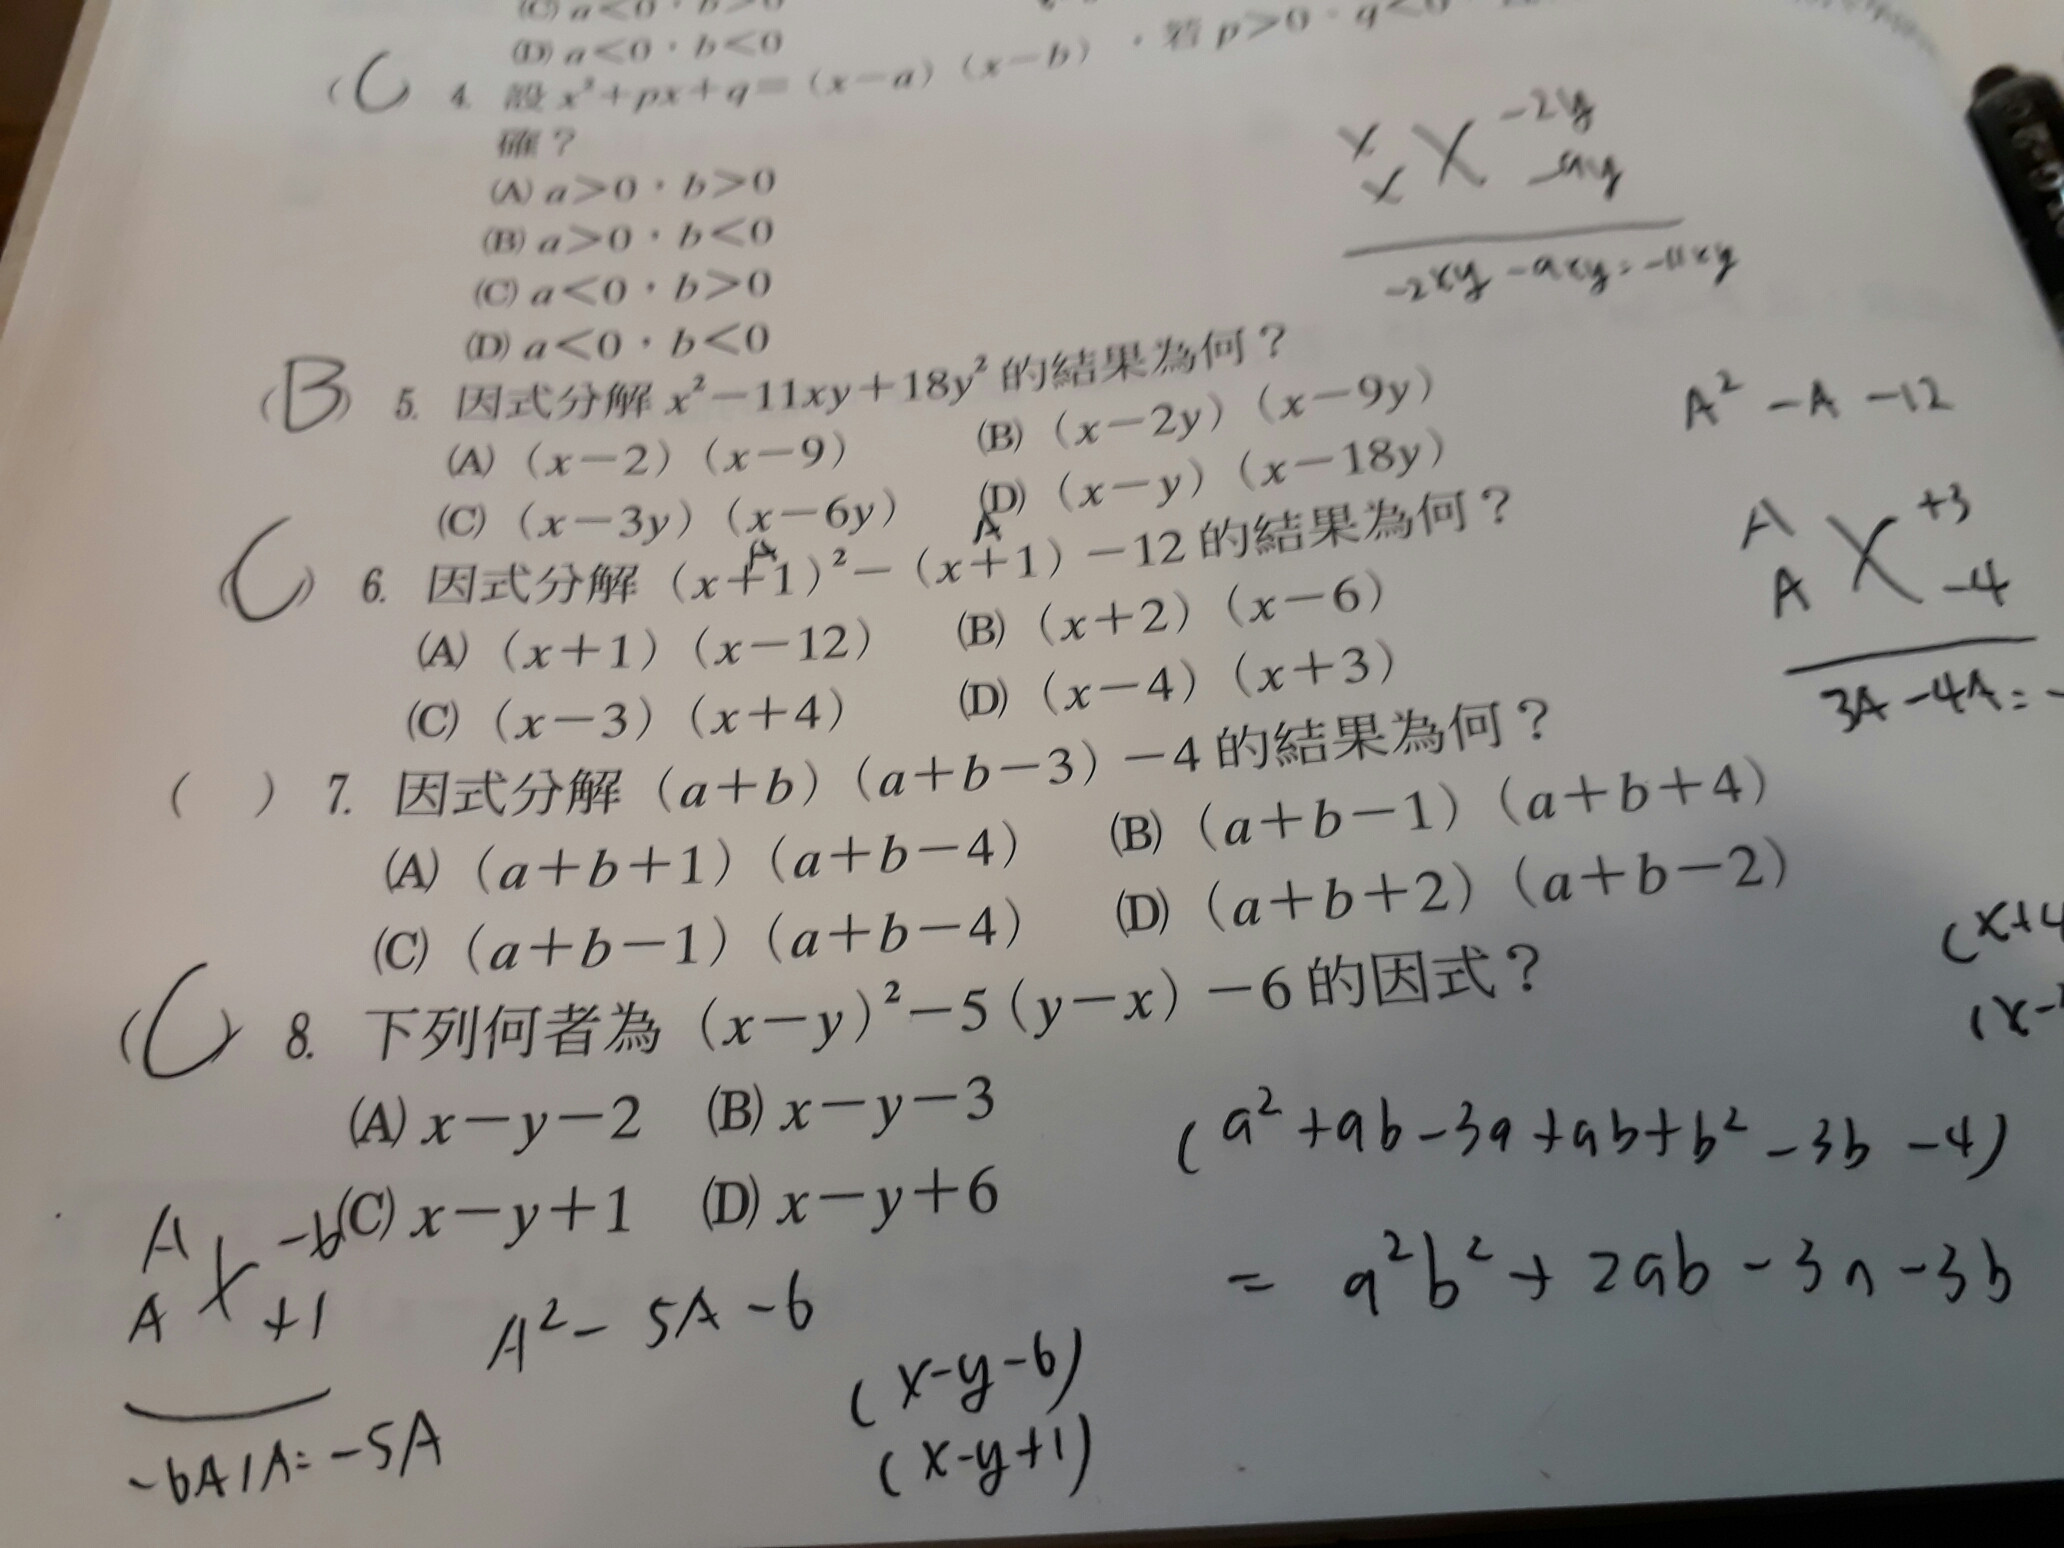 (C) a<0，b>0
(D) a<0，b<0
(C) 4. 設 x²+px+q=(x-a)(x-b)，若 p>0，q<0
確？
(A) a>0，b>0
(B) a>0，b<0
(C) a<0，b>0
(D) a<0，b<0
x x -2y
x
-2xy -9xy=-11xy
(B) 5. 因式分解 x²-11xy+18y² 的結果為何？
(A) (x-2)(x-9) (B) (x-2y)(x-9y)
(C) (x-3y)(x-6y) (D) (x-y)(x-18y)
A²-A-12
A A
(C) 6. 因式分解 (x+1)²-(x+1)-12 的結果為何？
(A) (x+1)(x-12) (B) (x+2)(x-6)
(C) (x-3)(x+4) (D) (x-4)(x+3)
A X +3
A -4
3A-4A=-
( ) 7. 因式分解 (a+b)(a+b-3)-4 的結果為何？
(A) (a+b+1)(a+b-4) (B) (a+b-1)(a+b+4)
(C) (a+b-1)(a+b-4) (D) (a+b+2)(a+b-2)
(x+4
(x-
(C) 8. 下列何者為 (x-y)²-5(y-x)-6 的因式？
(A) x-y-2 (B) x-y-3
(C) x-y+1 (D) x-y+6
(a²+ab-3a+ab+b²-3b-4)
= a²b²+2ab-3a-3b
A X -6
A +1
-6A1A=-5A
A²-5A-6
(x-y-6)
(x-y+1)